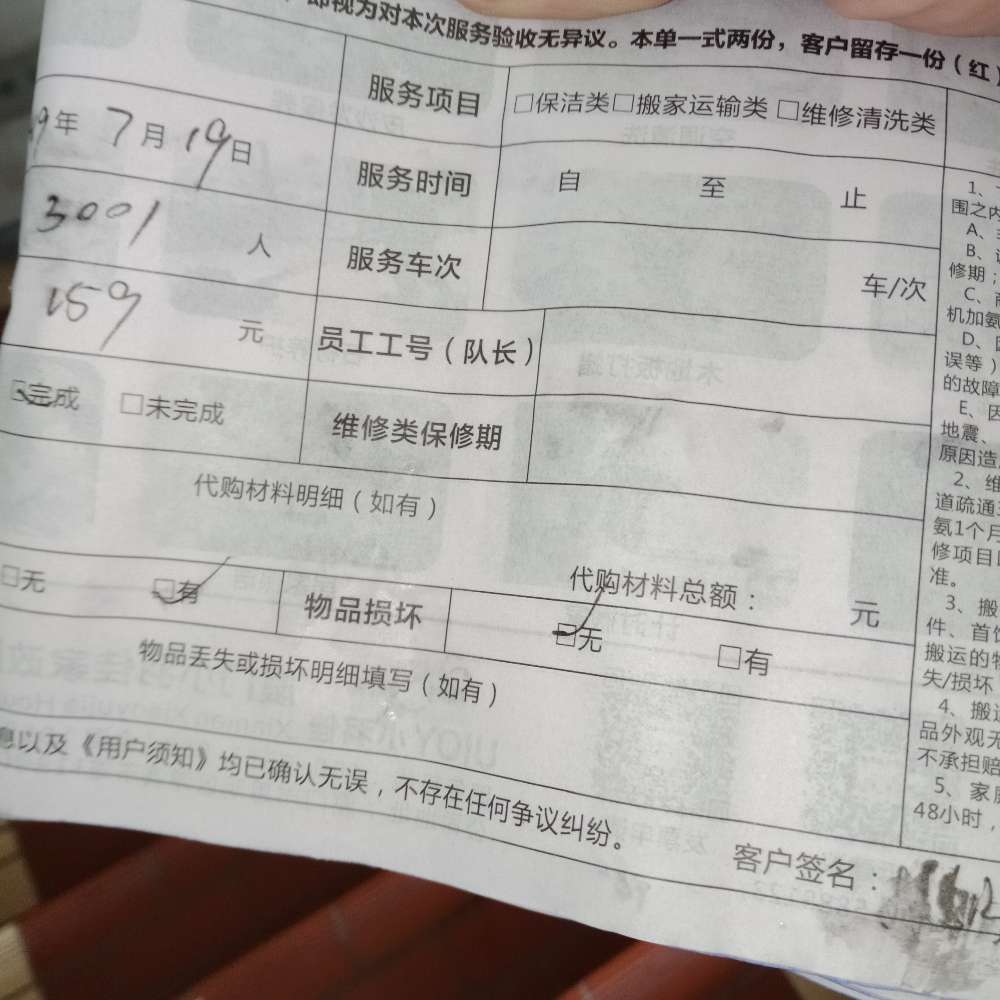 即视为对本次服务验收无异议。本单一式两份，客户留存一份（红）
服务项目 □保洁类□搬家运输类 □维修清洗类
9年 7月19日 服务时间 自 至 止
3001 人 服务车次 车/次
159 元 员工工号（队长）
☑完成 □未完成 维修类保修期
代购材料明细（如有）
代购材料总额： 元
□无 ☑有 物品损坏 ☑无 □有
物品丢失或损坏明细填写（如有）
息以及《用户须知》均已确认无误，不存在任何争议纠纷。
客户签名：
1、
围之内
A、
B、
修期；
C、
机加氨
D、
误等）
的故障
E、因
地震、
原因造
2、维
道疏通
氨1个月
修项目
准。
3、搬
件、首
搬运的物
失/损坏
4、搬运
品外观无
不承担赔
5、家
48小时，